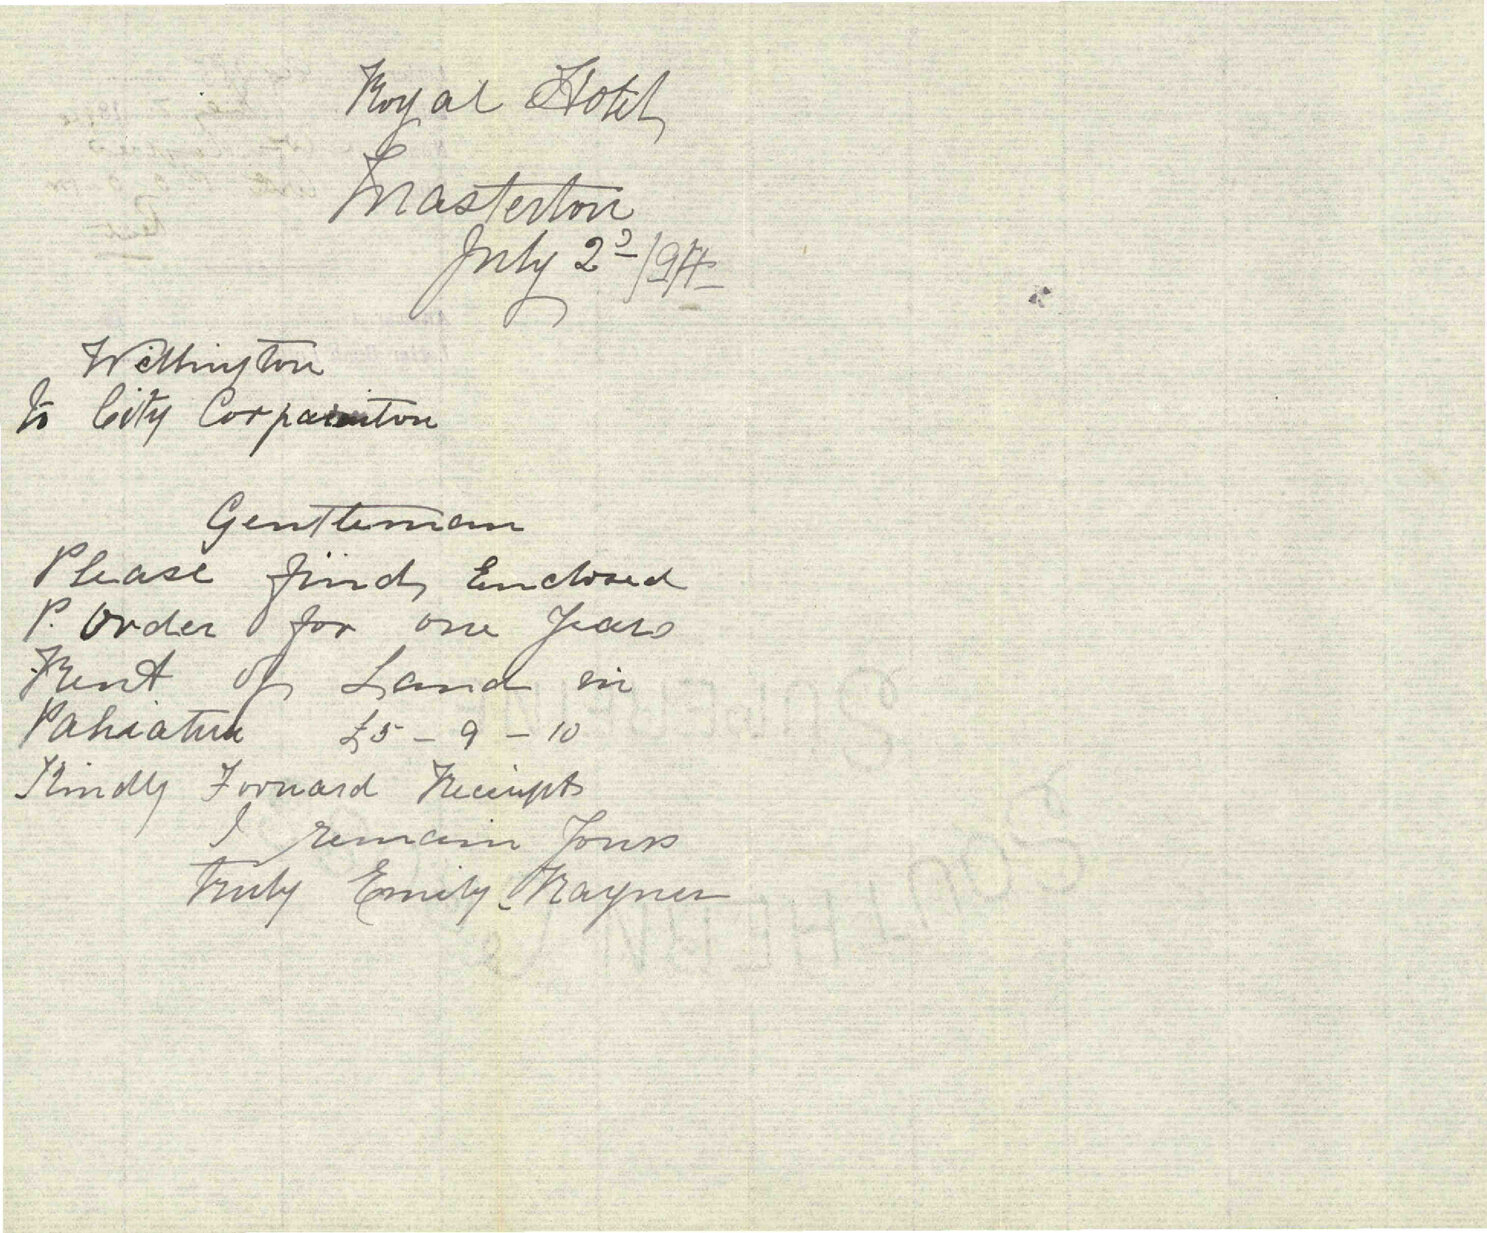 Royal Hotel
Masterton
July 2º/914
Wellington
To City Corparniton
Gentleman
Please find, Enclosed
P. Order for one Years
Rent of Land in
Pahiatua £5 - 9 - 10
Kindly Forward Receipts
I remain Yours
truly Emily Rayner
SOUTHERN